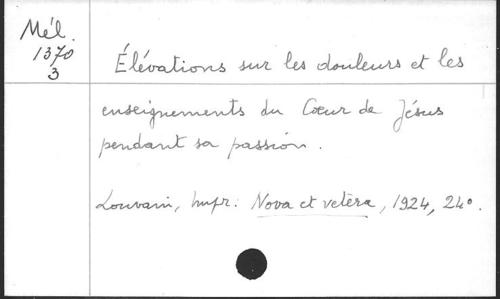 Mél.
1370
3
Élévations sur les douleurs et les
enseignements du Cœur de Jésus
pendant sa passion.
Louvain, Impr. Nova et vetera, 1924, 24°.